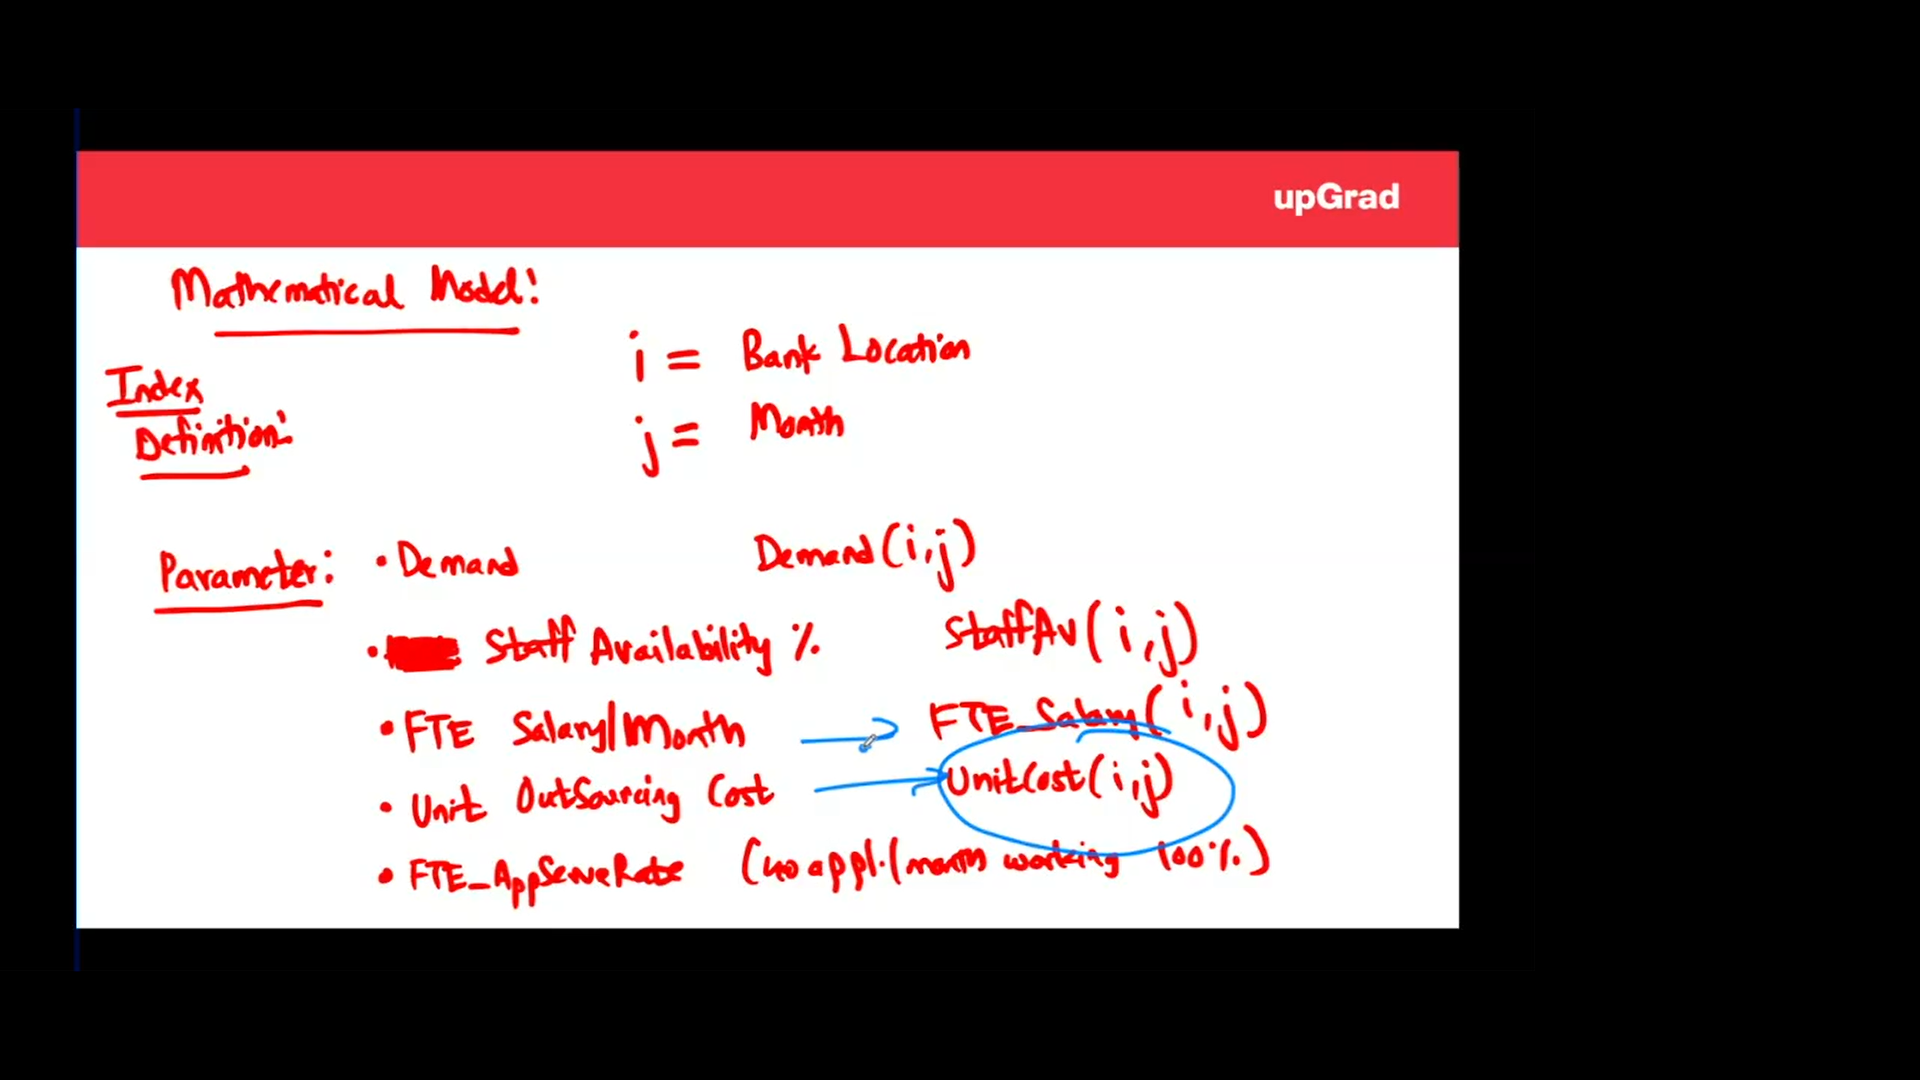 upGrad
Mathematical Model:
i = Bank Location
Index
Definition:
j = Month
Parameter: • Demand Demand(i,j)
• Staff Availability % StaffAv(i,j)
• FTE Salary/Month FTE_Salary(i,j)
• Unit OutSourcing Cost UnitCost(i,j)
• FTE_AppServeRate (no appl./month working 100%)